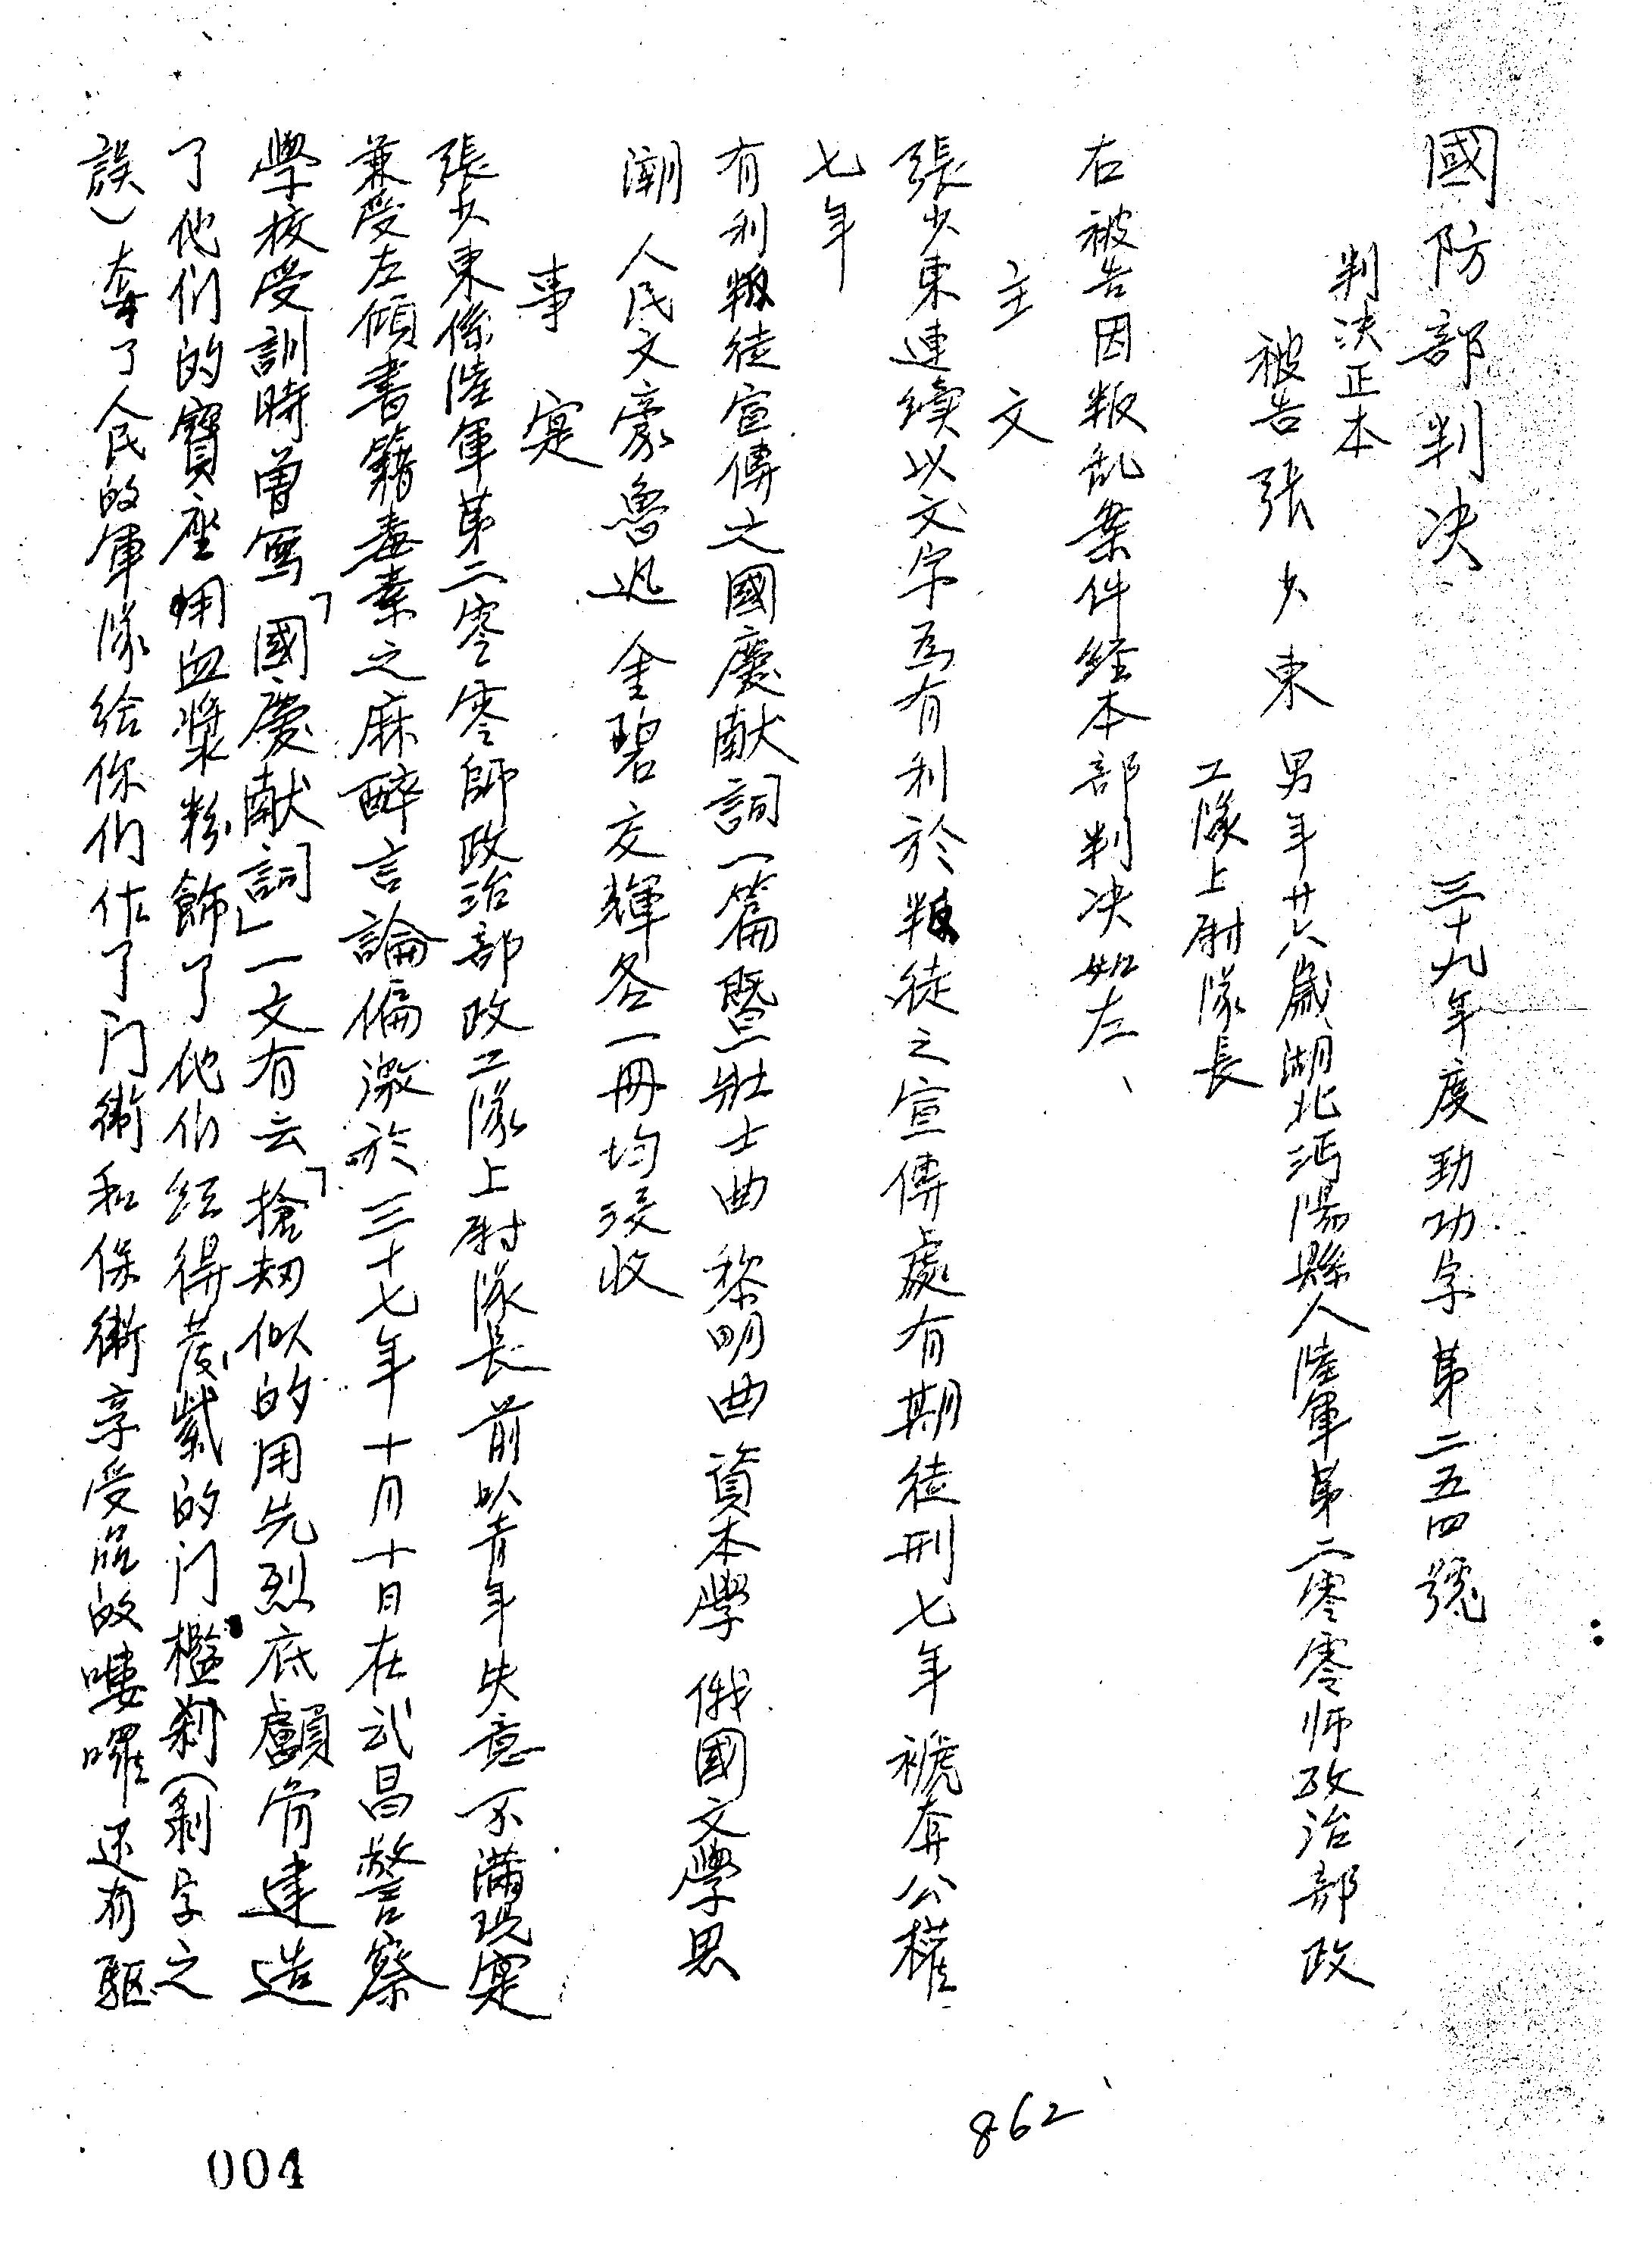 國防部判决 三十九年度勁功字第二五四號
判决正本
被告 張少東 男年廿八歲湖北沔陽縣人陸軍第二零零师政治部政
工隊上尉隊長
右被告因叛乱案件經本部判决如左、
主文
張少東連續以文字為有利於叛徒之宣傳處有期徒刑七年褫奪公權
七年
有利叛徒宣傳之國慶献詞一篇暨壯士曲 黎明曲 資本學 俄國文學思
潮 人民文豪魯迅 金碧交輝各一冊均沒收
事实
張少東係陸軍第二零零師政治部政工隊上尉隊長前以青年失意不滿現实
兼受左傾書籍毒素之麻醉言論偏激於三十七年十月十日在武昌警察
學校受訓時曾寫「國慶献詞」一文有云「搶劫似的用先烈底顱骨建造
了他們的寶座用血漿粉飾了他们经得發紫的门檻剎(剝字之
誤)奪了人民的军隊給你们作了门衛和保衛享受的嘍囉还有驅
862
004